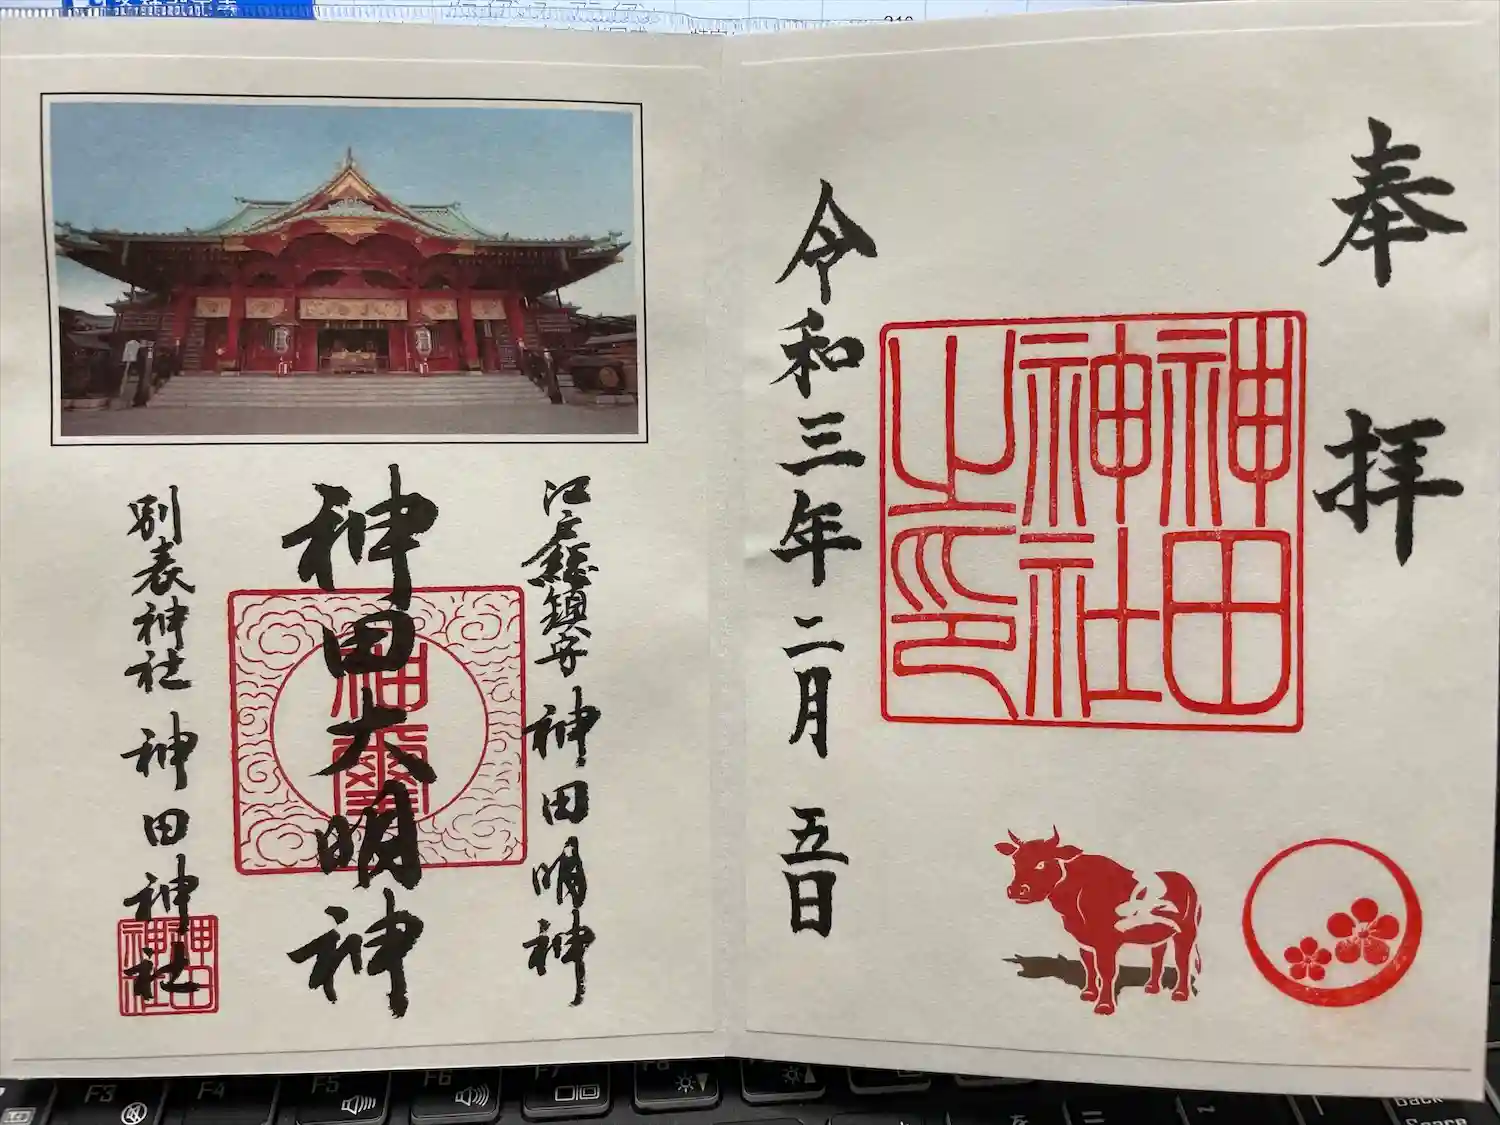 奉拝
神田
神社
之印
令和三年二月五日
江戸総鎮守 神田明神
神田大明神
神璽
別表神社 神田神社
神田
神社
F3
F4
F5
F6
F7
F8
Back
Space